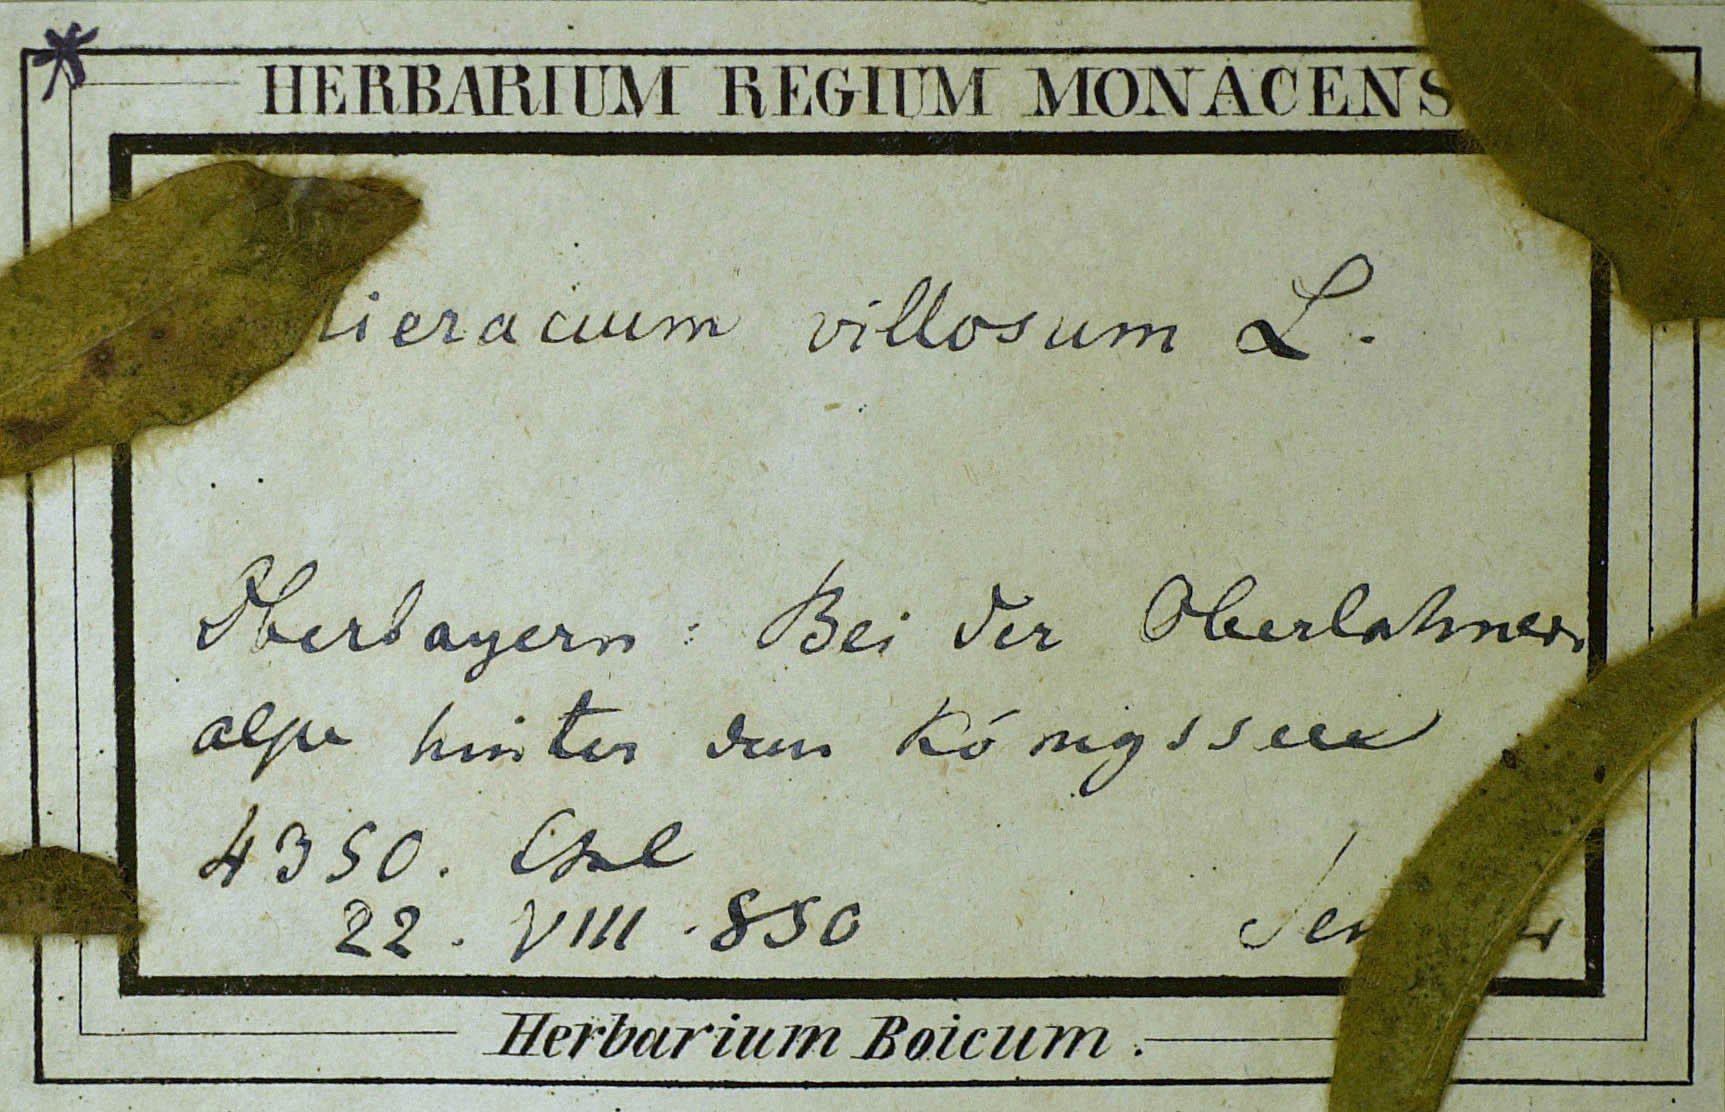 HERBARIUM REGIUM MONACENS
ieracium villosum L.
Oberbayern: Bei der Oberlahner
alpe hinter dem Königssee
4350.
22. VIII. 850
Herbarium Boicum.